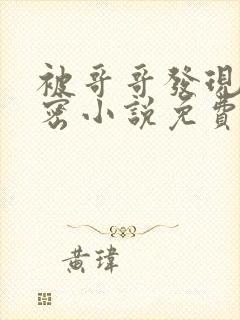 被哥哥發現
密小說免費
黃瑋